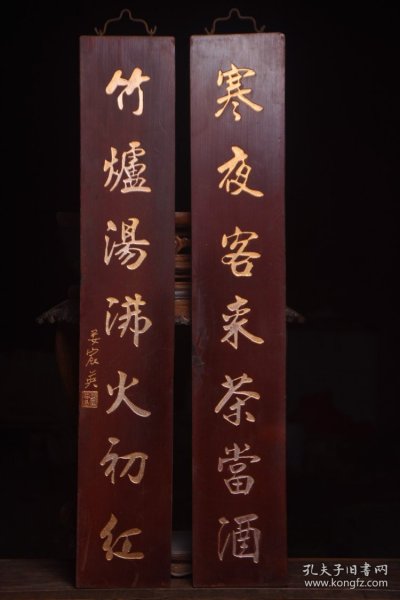 寒夜客来茶當酒
竹爐湯沸火初红
孔夫子旧书网
www.kongfz.com